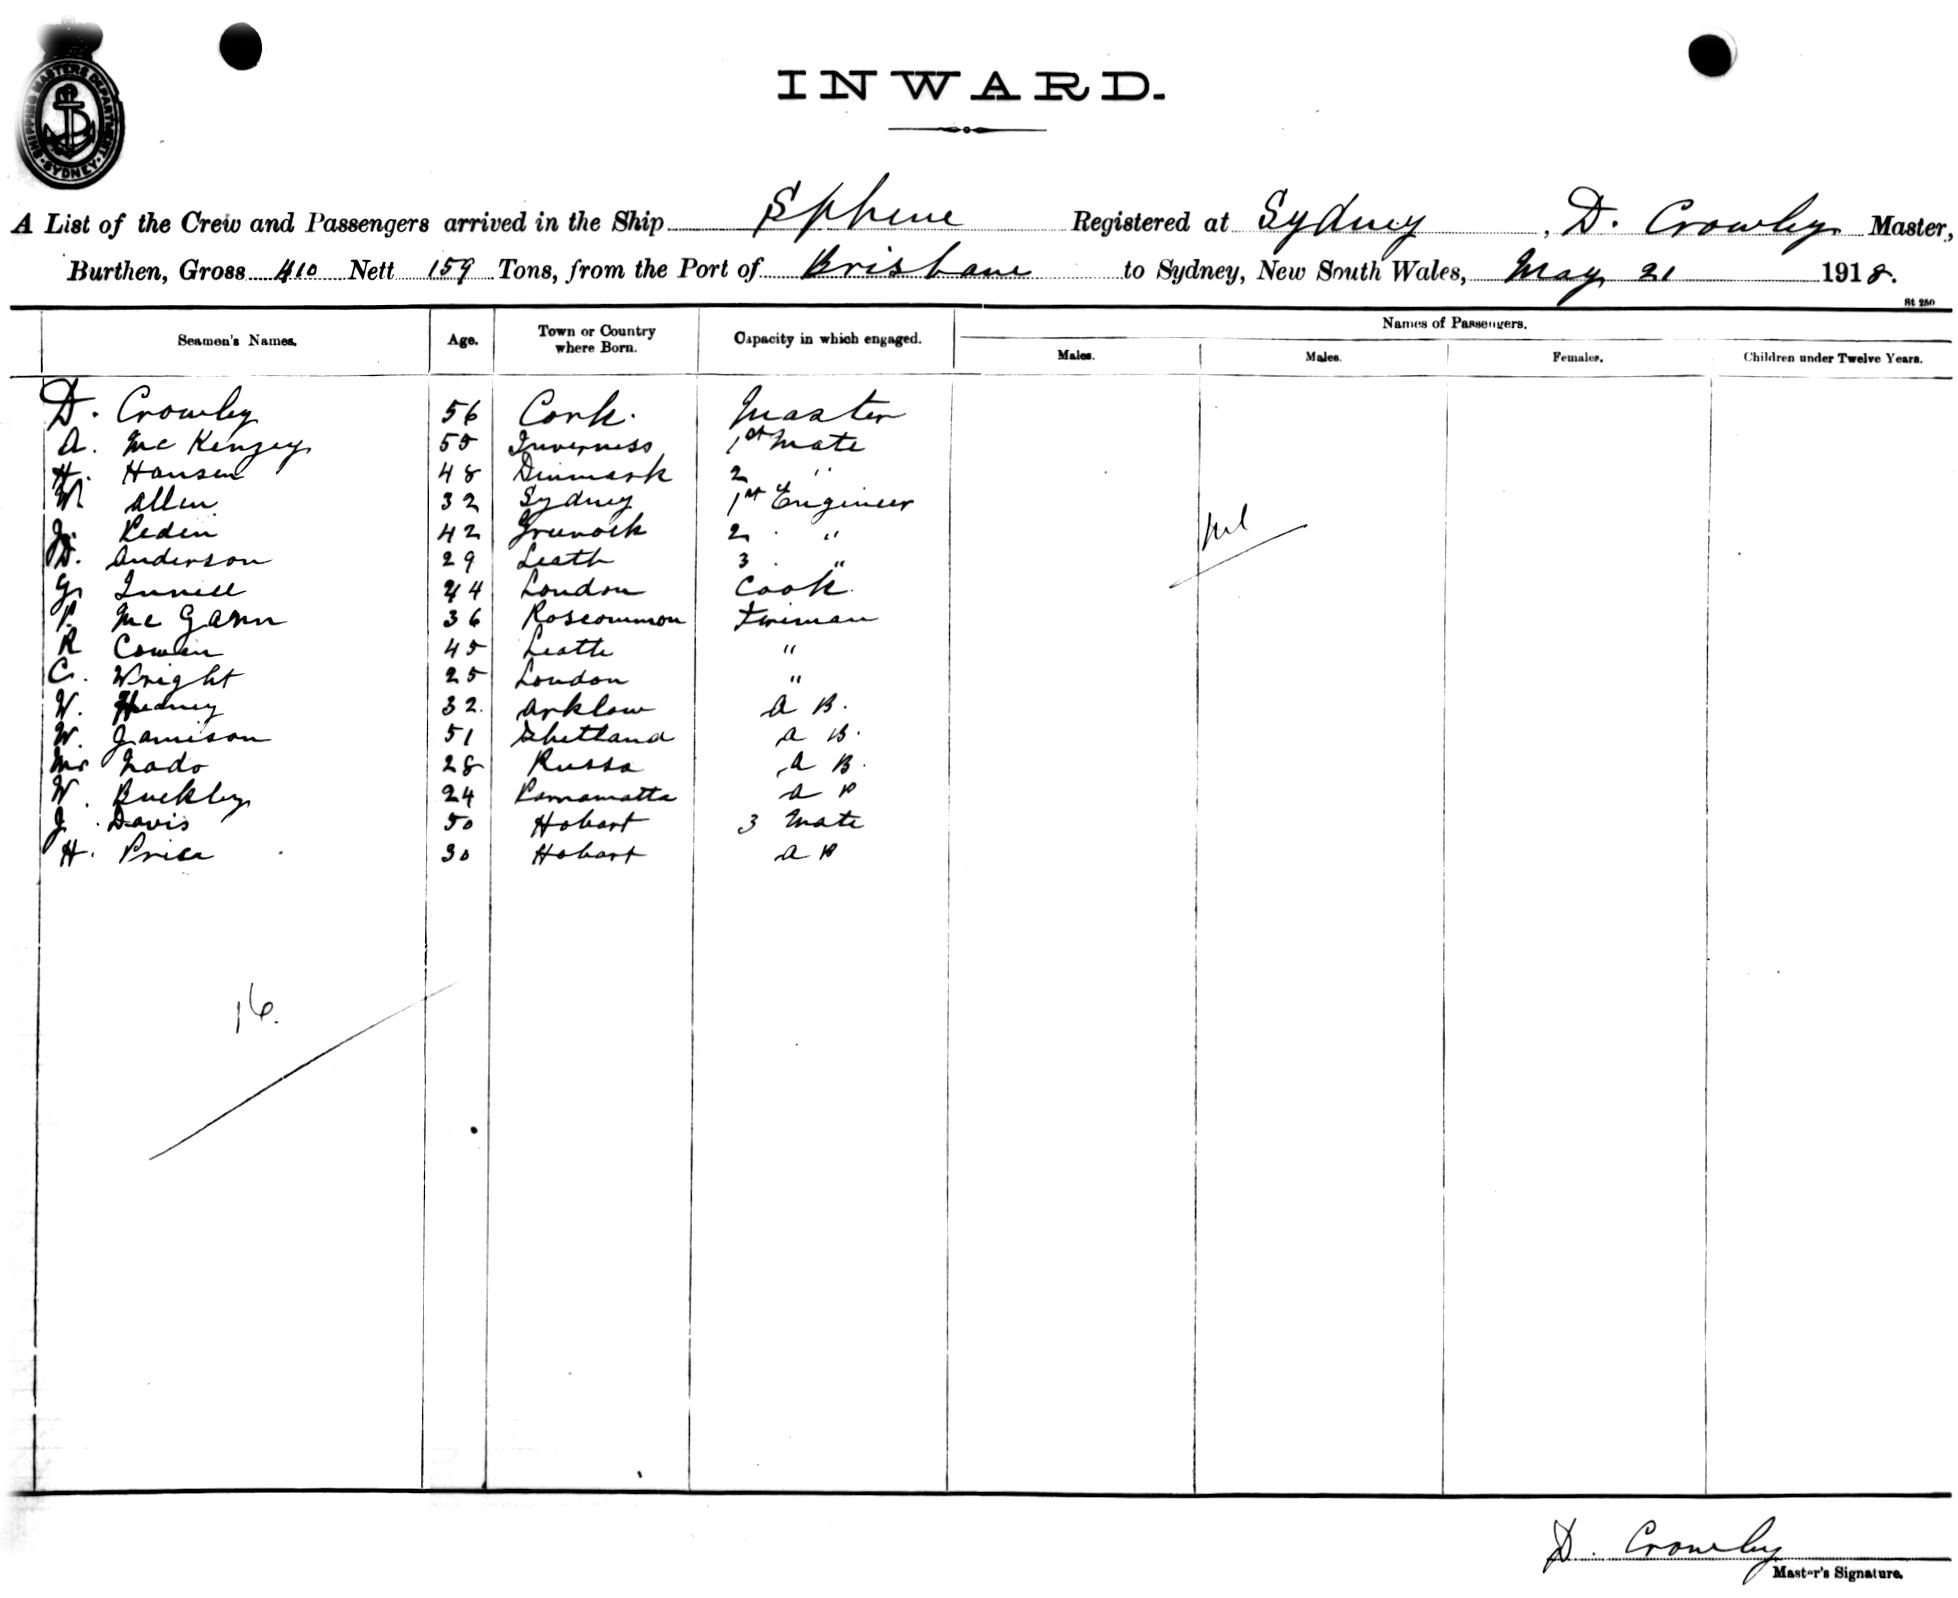 SHIPPING MASTERS DEPARTMENT SYDNEY
INWARD.
A List of the Crew and Passengers arrived in the Ship Sphene Registered at Sydney, D. Crowley Master,
Burthen, Gross 410 Nett 159 Tons, from the Port of Brisbane to Sydney, New South Wales, May 21 1918.
St 250
Seamen's Names. Age. Town or Country where Born. Capacity in which engaged. Names of Passengers.
Males. Males. Females. Children under Twelve Years.
D. Crowley 56 Cork. Master
A. McKenzey 55 Inverness 1st Mate
H. Hansen 48 Dinmark 2 "
W. Allen 32 Sydney 1st Engineer
J. Peden 42 Greenock 2 "
D. Anderson 29 Leath 3 "
G. 44 London Cook
P. McGann 36 Roscommon Fireman
R Cowen 45 Leath "
C. Wright 25 London "
W. 32. Arklow A B.
W. Jamison 51 Shetland A B.
28 Russa A B.
W. Buckley 24 Parramatta A B
J. Davis 50 Hobart 3 Mate
H. Price 30 Hobart A B
Nil
16.
D. Crowley
Master's Signature.